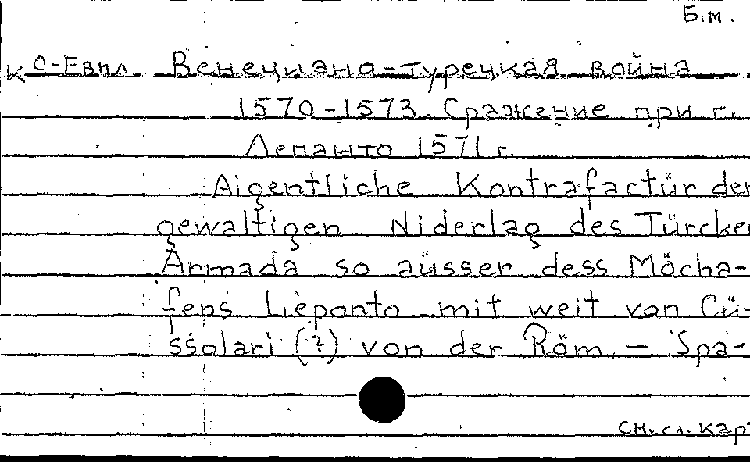 Б.м.
К О-Евпл Венециано-турецкая война
1570-1573. Сражение при г.
Лепанто 1571 г.
Aigentliche Kontrafactür der
gewaltigen Niderlag des Türcken
Armada so aüsser dess Möcha-
fens Lieponto mit weit van Cü-
ssolari (?) von der Röm. – Spa-
см. сл. карт